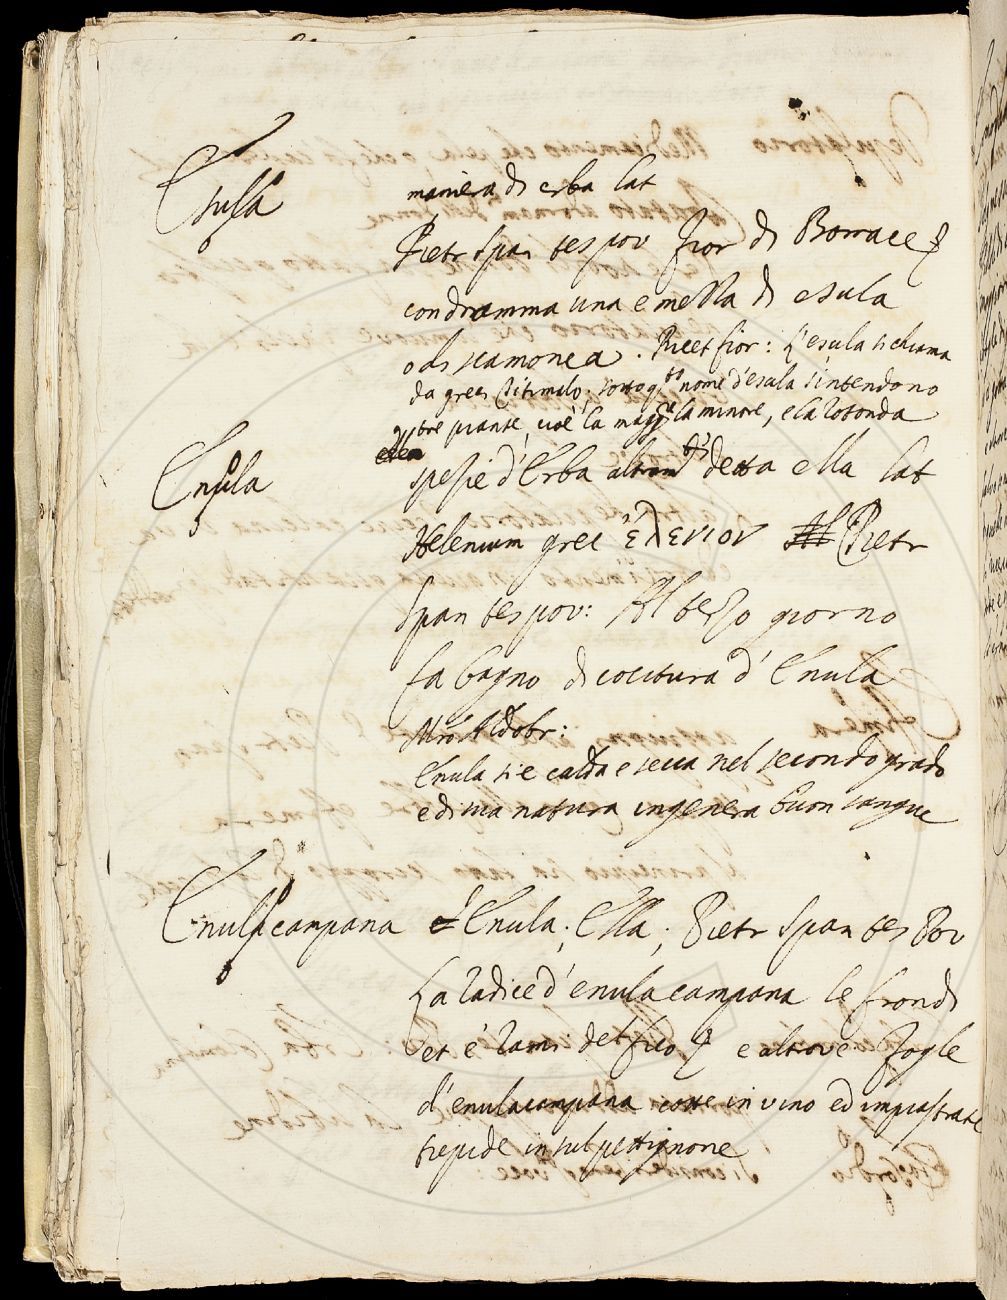 Esula
maniera di erba lat
Pietr Span tes pov fior di Borrace
con dramma una e mezza di esula
o di scamonea. Ricet fior: L'esula si chiama
da greci Titimalo; sotto q.to nome d'esula s'intendono
tre piante cioè la magg.re la minore, e la rotonda
Enula
spezie d'Erba altrim.ti detta ella lat
Helenium grec ἑλενιον Pietr
Span tes pov: Al terzo giorno
fa bagno di cocitura d'Enula
M.ro Aldobr:
Enula si è calda e secca nel secondo grado
e di sua natura ingenera buon sangue
Enula campana
Enula; Ella; Pietr Span tes Pov
La radice d'enula campana le frondi
et è rami del fico e altrove Fogle
d'enula campana cotte in vino ed impiastrate
tiepide in sul pettignone